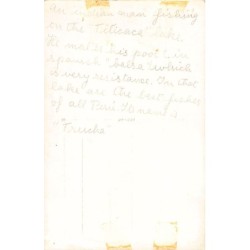 An indian man fishing
on the "Titicaca" lake.
He makes his pool, in
spanish "balsa" which
is very resistance. In that
lake are the best fishes
of all Perú. It name is
"Trucha"